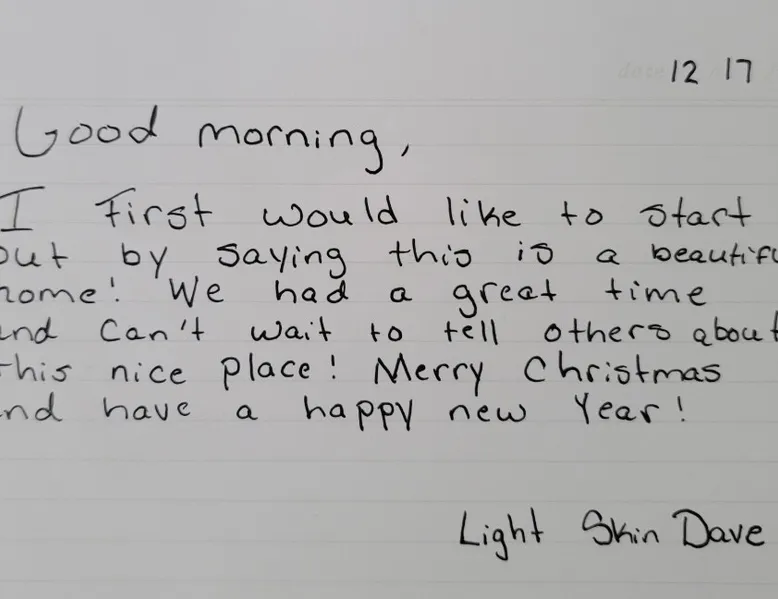 12 17
Good morning,
I first would like to start
out by saying this is a beautifu
home! We had a great time
and can't wait to tell others about
this nice place! Merry Christmas
and have a happy new Year!
Light Skin Dave